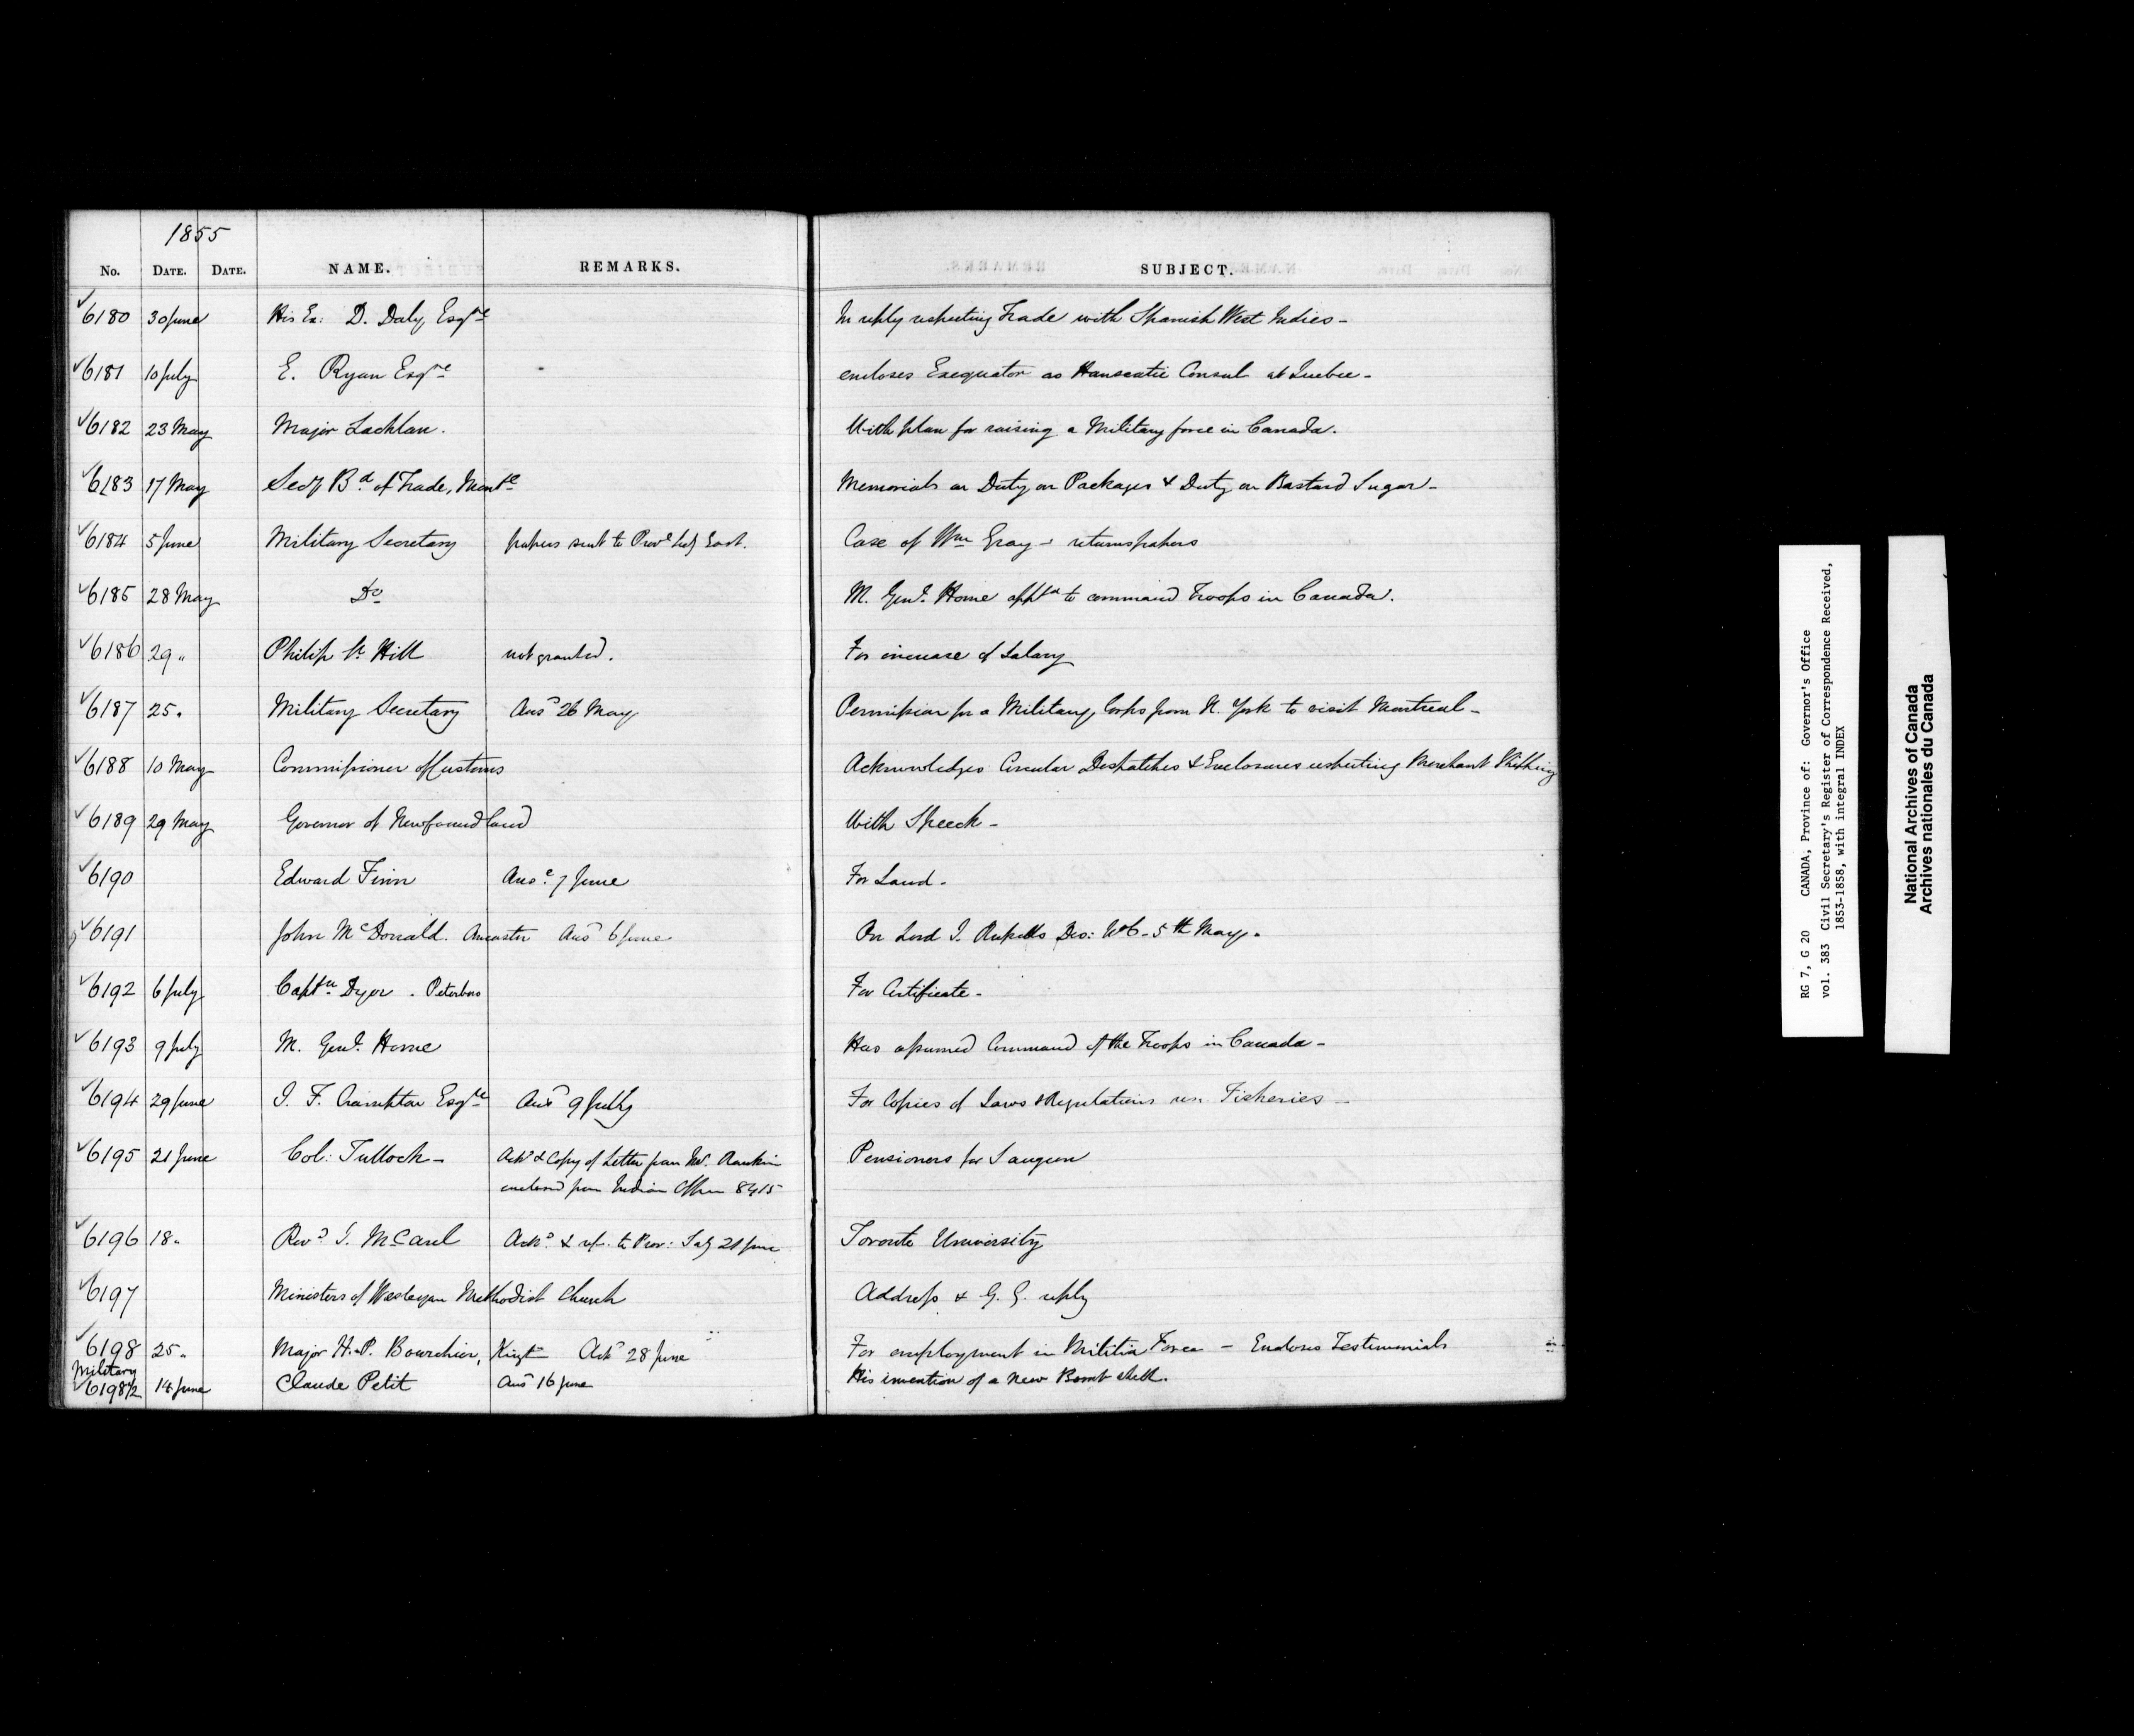 1855
No. DATE. DATE. NAME. REMARKS. SUBJECT.
6180 30 June His Ex: D. Daly Esqre In reply respecting Trade with Spanish West Indies -
6181 10 July E. Ryan Esqre encloses Exequator as Hanseatic Consul at Quebec -
6182 23 May Major Lachlan. With plan for raising a Military force in Canada.
6183 17 May Secy Bd of Trade, Montl Memorials on Duty on Packages & Duty on Bastard Sugar -
6184 5 June Military Secretary papers sent to Provl Secy East. Case of Wm Gray - returns papers
6185 28 May Do M. Genl. Home apptd to command Troops in Canada.
6186 29 " Philip Hill not granted. For increase of Salary
6187 25 " Military Secretary Ansd 26 May Permission for a Military Corps from N. York to visit Montreal -
6188 10 May Commissioner of Customs Acknowledges Circular Despatches & Enclosures respecting Merchant Shipping
6189 29 May Governor of Newfoundland With Speech -
6190 Edward Finn Ansd. 7 June For Land -
6191 John McDonald. Ancaster Ansd 6 June On Lord J. Russells Des: No 6 - 5th May.
6192 6 July Captn Dyer. Peterboro For Certificate -
6193 9 July M. Genl. Home Has assumed Command of the Troops in Canada -
6194 29 June J. F. Crampton Esqre Ansd 9 July For Copies of Laws & Regulations res. Fisheries -
6195 21 June Col: Tulloch - Ackd & Copy of Letter from Mr. Rankin Pensioners for Saugeen
enclosed from Indian Office 8415
6196 18 " Revd J. McCarel Ackd. & ref. to Prov: Secy 21 June Toronto University
6197 Ministers of Wesleyan Methodist Church Address & G. G. reply
6198 25 " Major H. P. Bourchier, Kingt Ackd 28 June For employment in Militia Force - Encloses Testimonials
Military
6198 1/2 14 June Claude Petit Ansd 16 June His invention of a New Bomb shell.
RG 7, G 20 CANADA, Province of: Governor's Office
vol. 383 Civil Secretary's Register of Correspondence Received,
1853-1858, with integral INDEX
National Archives of Canada
Archives nationales du Canada